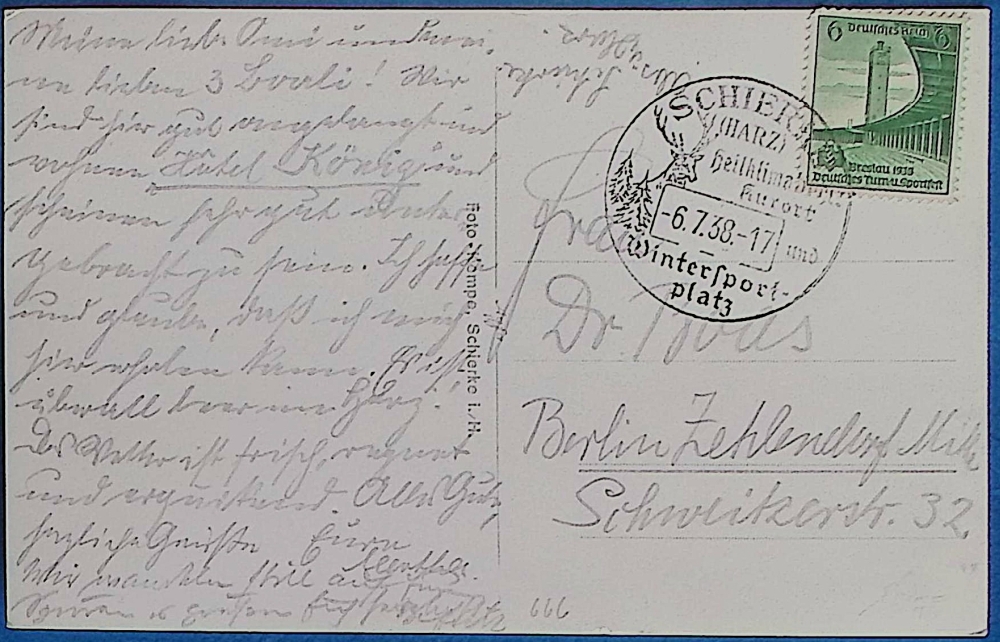 Meine liebe Omi und mei-
ne lieben 3 Boali! Wir
sind hier gut angelangt und
wohnen Hotel König und
scheinen sehr gut unter
gebracht zu sein. Ich hoffe
und glaube, daß ich mich
hier erholen kann. Es ist
überall leer im Harz.
Das Wetter ist frisch, regnet
und erquickend. Alles Gute,
herzliche Grüße Eure
Wir wandeln still auf
Foto-Kompe, Schierke i./H.
6 Deutsches Reich 6
Breslau 1938
Deutsches Turn- u. Sportfest
SCHIERKE
(HARZ)
Heilklimatischer
Kurort
-6.7.38.-17
und
Wintersport-
platz
Frau
Dr Boas
Berlin Zehlendorf Mitte
Schweitzerstr. 32.
666